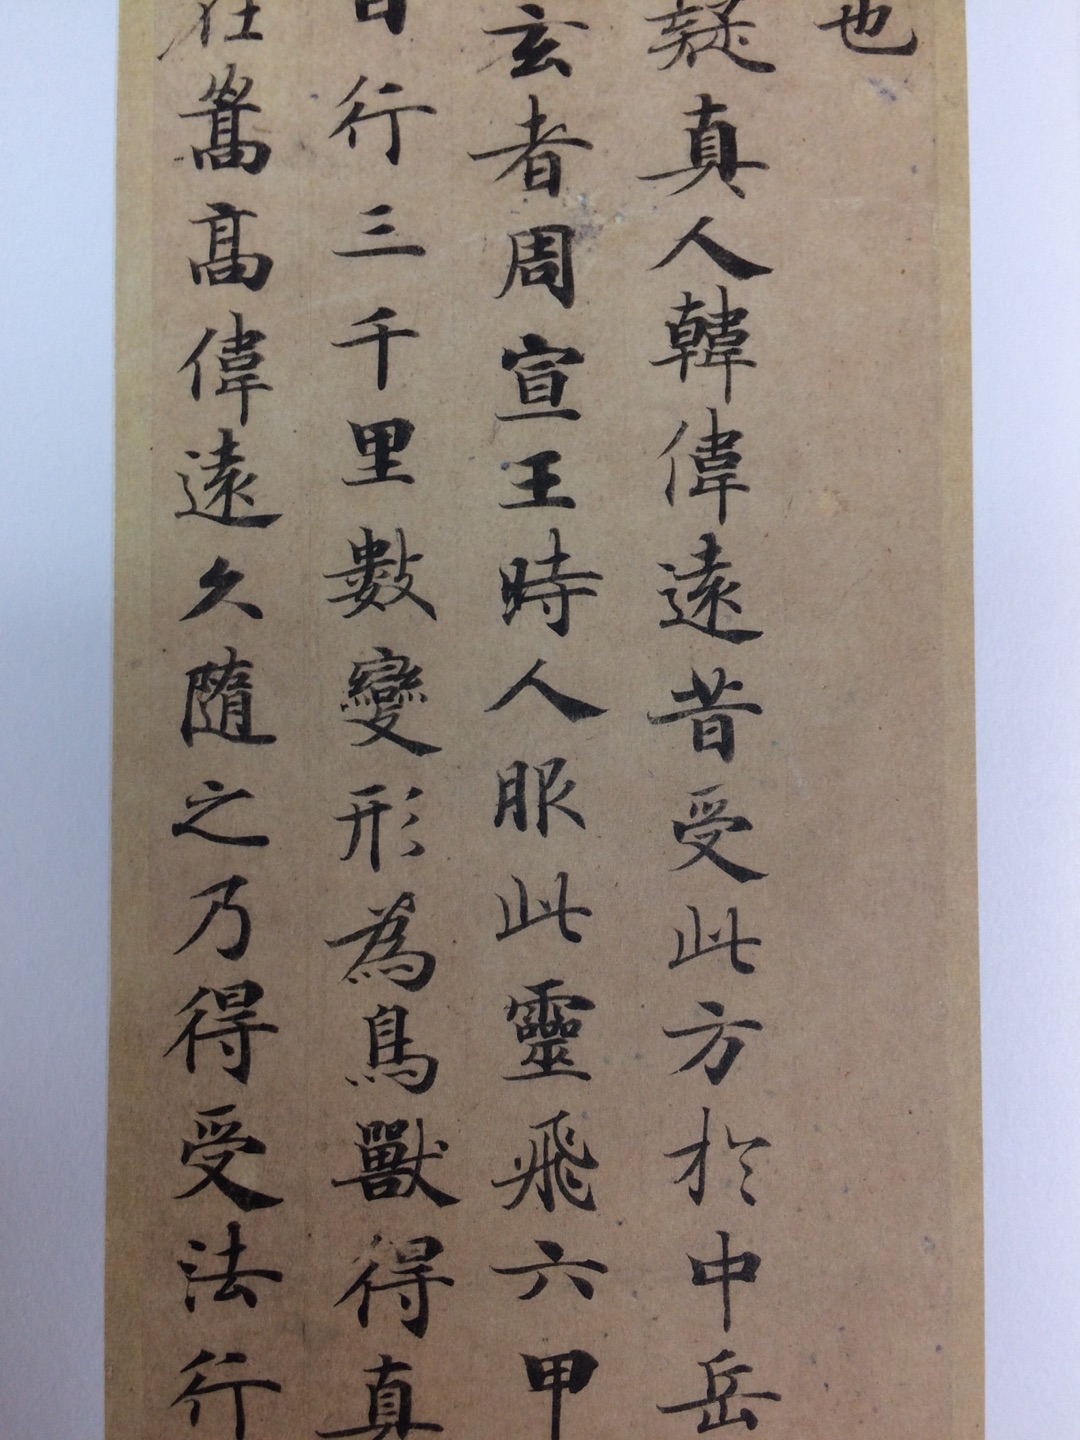 也
疑真人韓偉遠昔受此方於中岳
玄者周宣王時人服此靈飛六甲
日行三千里數變形為鳥獸得真
在嵩高偉遠久隨之乃得受法行